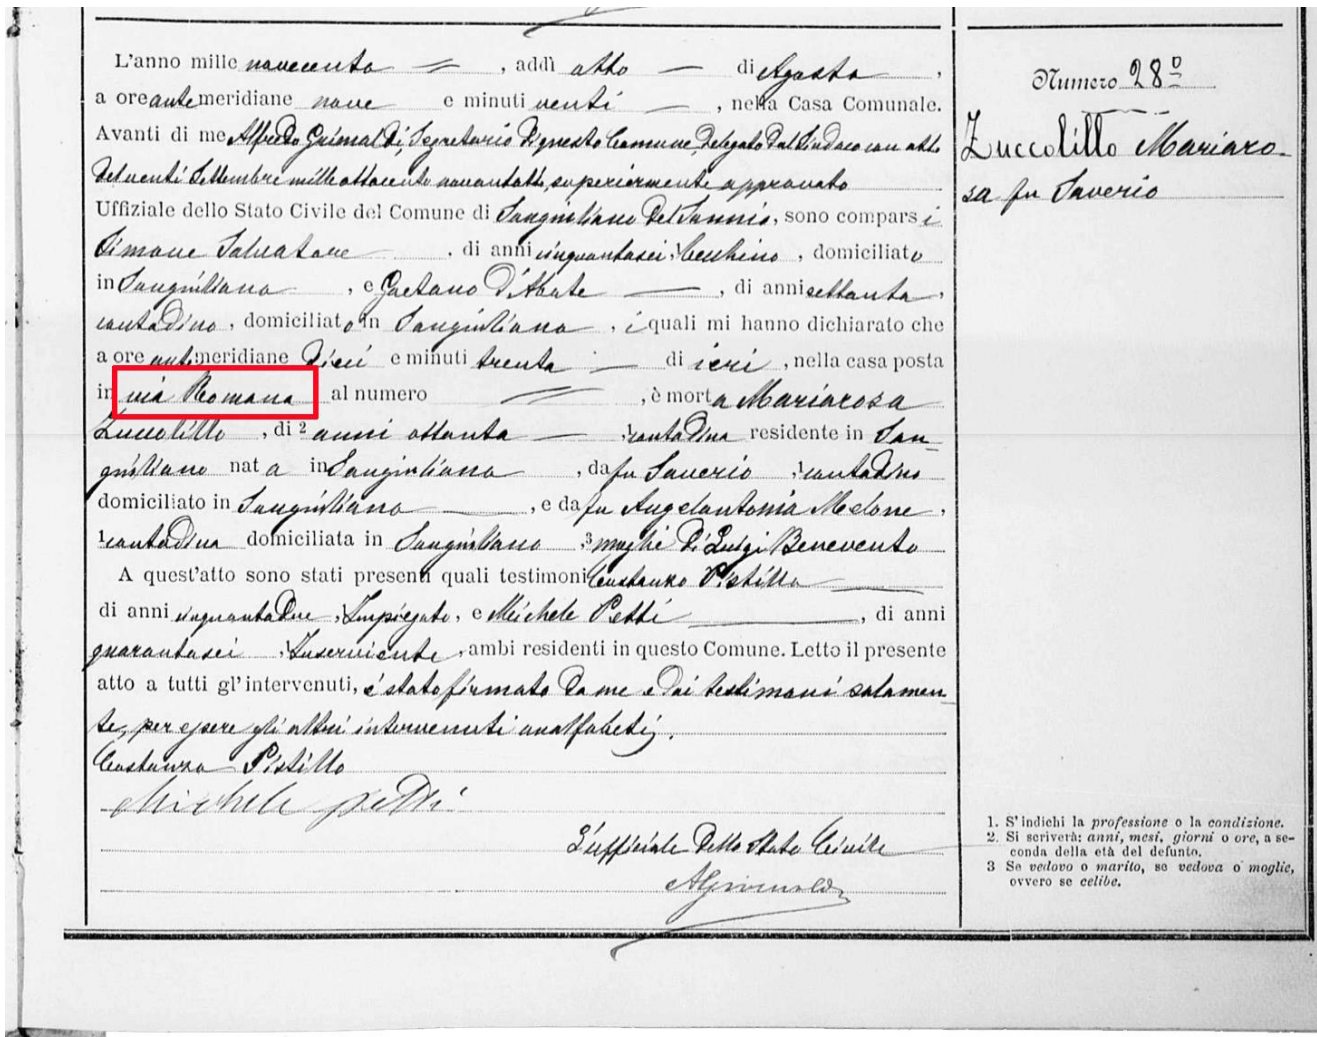 L'anno mille novecento , addì otto di Agosto ,
a ore antemeridiane nove e minuti venti , nella Casa Comunale.
Avanti di me Alfredo Grimaldi, Segretario di questo Comune, delegato dal Sindaco con atto
del venti Settembre milleottocento novantotto, superiormente approvato
Uffiziale dello Stato Civile del Comune di Sangiuliano del Sannio, sono comparsi
Simone Salvatore , di anni cinquantasei, , domiciliato
in Sangiuliano , e Gaetano D'Abate , di anni settanta,
contadino , domiciliato in Sangiuliano , i quali mi hanno dichiarato che
a ore antimeridiane dieci e minuti trenta di ieri , nella casa posta
in via Romana al numero , è morta Mariarosa
Zuccolillo , di 2 anni ottanta 1 contadina residente in San-
giuliano nata in Sangiuliano , da fu Saverio , 1 contadino
domiciliato in Sangiuliano , e da fu Angelantonia Melone ,
1 contadina domiciliata in Sangiuliano 3 moglie di Luigi Benevento
A quest'atto sono stati presenti quali testimoni Costanzo Pistillo
di anni cinquantadue , 1 Impiegato, e Michele Petti , di anni
quarantasei , 1 Inserviente , ambi residenti in questo Comune. Letto il presente
atto a tutti gl'intervenuti, è stato firmato da me e dai testimoni solamen-
te, per essere gli altri intervenuti analfabeti.
Costanzo Pistillo
Michele Petti
L'ufficiale dello Stato Civile
AGrimaldi
Numero 28º
Zuccolillo Mariaro-
sa fu Saverio
1. S'indichi la professione o la condizione.
2. Si scriverà: anni, mesi, giorni o ore, a se-
conda della età del defunto.
3 Se vedovo o marito, se vedova o moglie,
ovvero se celibe.